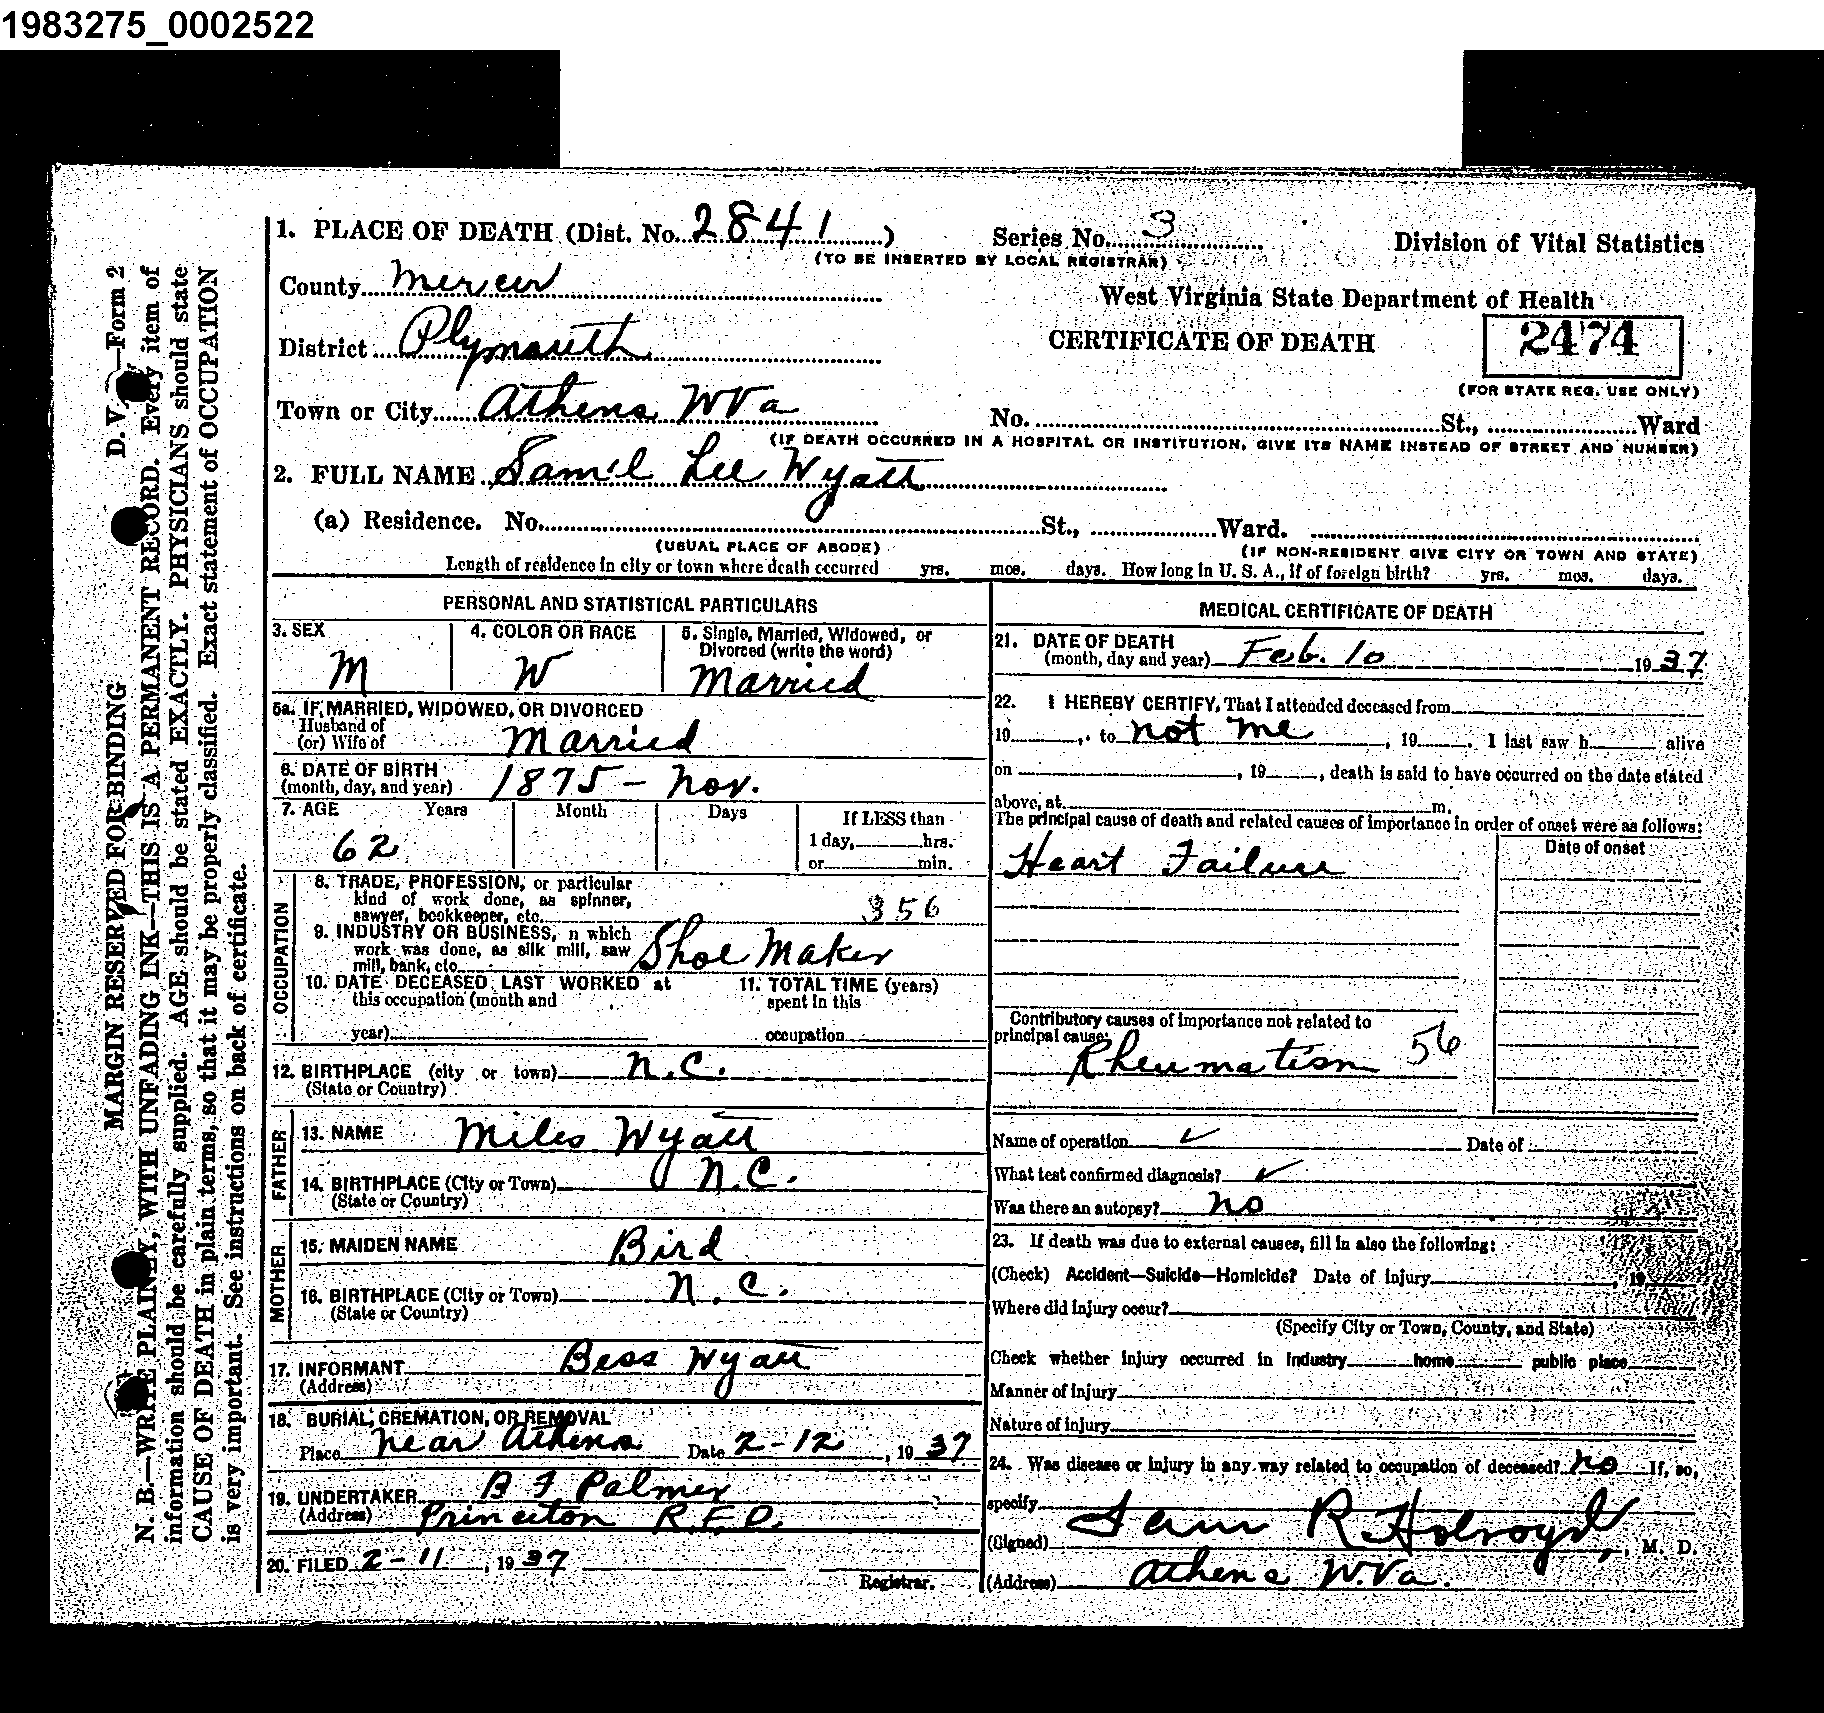 1983275_0002522
1. PLACE OF DEATH (Dist. No. 2841) Series No. 3 Division of Vital Statistics
(TO BE INSERTED BY LOCAL REGISTRAR)
County Mercer West Virginia State Department of Health
District Plymouth CERTIFICATE OF DEATH 2474
(FOR STATE REG. USE ONLY)
Town or City Athens W Va No. St., Ward
(IF DEATH OCCURRED IN A HOSPITAL OR INSTITUTION, GIVE ITS NAME INSTEAD OF STREET AND NUMBER)
2. FULL NAME Sam'l Lee Wyatt
(a) Residence. No. St., Ward.
(USUAL PLACE OF ABODE) (IF NON-RESIDENT GIVE CITY OR TOWN AND STATE)
Length of residence in city or town where death occurred yrs. mos. days. How long in U. S. A., if of foreign birth? yrs. mos. days.
PERSONAL AND STATISTICAL PARTICULARS
3. SEX 4. COLOR OR RACE 5. Single, Married, Widowed, or
Divorced (write the word)
M W Married
5a. IF MARRIED, WIDOWED, OR DIVORCED
Husband of
(or) Wife of Married
6. DATE OF BIRTH
(month, day, and year) 1875 - Nov.
7. AGE Years Month Days If LESS than
1 day, hrs.
or min.
62
OCCUPATION
8. TRADE, PROFESSION, or particular
kind of work done, as spinner,
sawyer, bookkeeper, etc. 356
9. INDUSTRY OR BUSINESS, n which
work was done, as silk mill, saw
mill, bank, etc. Shoe Maker
10. DATE DECEASED LAST WORKED at 11. TOTAL TIME (years)
this occupation (month and spent in this
year) occupation
12. BIRTHPLACE (city or town) N.C.
(State or Country)
FATHER
13. NAME Miles Wyatt
14. BIRTHPLACE (City or Town) N.C.
(State or Country)
MOTHER
15. MAIDEN NAME Bird
16. BIRTHPLACE (City or Town) N.C.
(State or Country)
17. INFORMANT Bess Wyatt
(Address)
18. BURIAL, CREMATION, OR REMOVAL
Place near Athens Date 2-12, 1937
19. UNDERTAKER B F Palmer
(Address) Princeton R.F.D.
20. FILED 2-11, 1937
Registrar.
MEDICAL CERTIFICATE OF DEATH
21. DATE OF DEATH
(month, day and year) Feb. 10 1937
22. I HEREBY CERTIFY, That I attended deceased from
19 , to not me , 19 . I last saw h alive
on , 19 , death is said to have occurred on the date stated
above, at m.
The principal cause of death and related causes of importance in order of onset were as follows:
Date of onset
Heart Failure
Contributory causes of importance not related to
principal cause:
Rheumatism 56
Name of operation ✓ Date of
What test confirmed diagnosis? ✓
Was there an autopsy? No
23. If death was due to external causes, fill in also the following:
(Check) Accident—Suicide—Homicide? Date of Injury , 19
Where did injury occur?
(Specify City or Town, County, and State)
Check whether injury occurred in industry home public place
Manner of injury
Nature of injury
24. Was disease or injury in any way related to occupation of deceased? No If, so,
specify
(Signed) Sam R Holroyd, M. D.
(Address) Athens W.Va.
D. V. —Form 2
MARGIN RESERVED FOR BINDING
N. B.—WRITE PLAINLY, WITH UNFADING INK—THIS IS A PERMANENT RECORD. Every item of
information should be carefully supplied. AGE should be stated EXACTLY. PHYSICIANS should state
CAUSE OF DEATH in plain terms, so that it may be properly classified. Exact statement of OCCUPATION
is very important. See instructions on back of certificate.